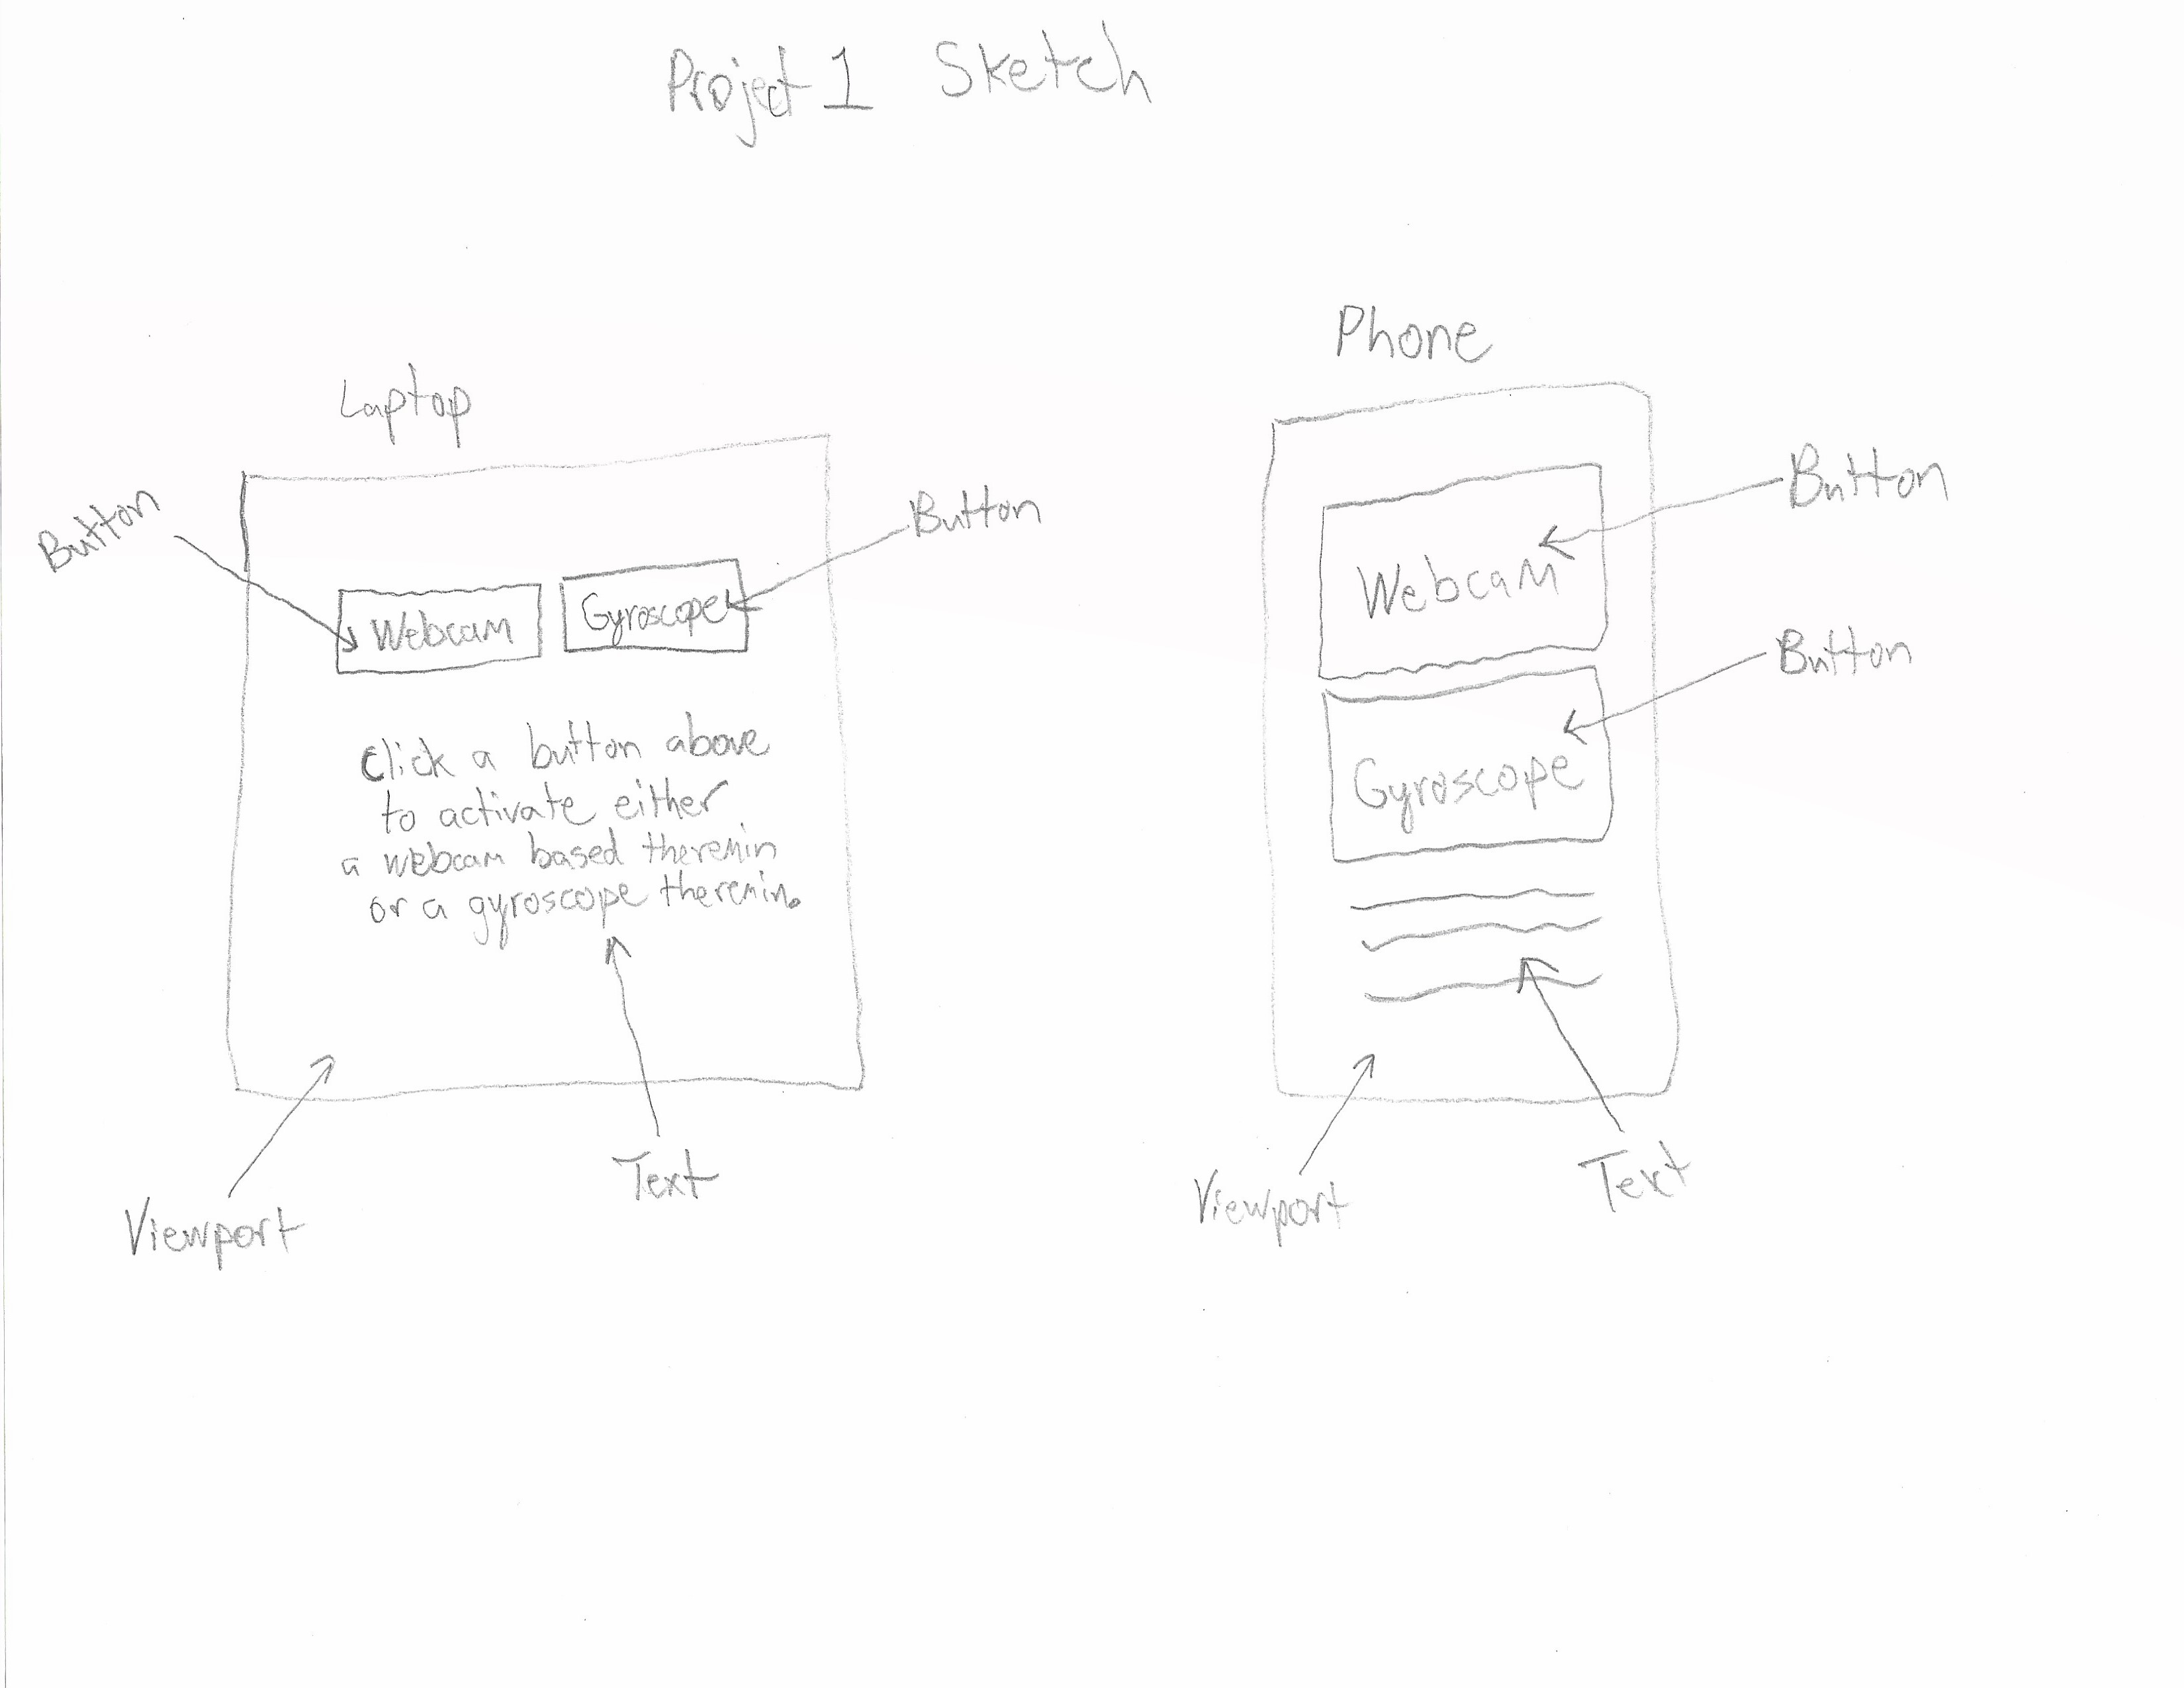 Project 1 Sketch
Laptop
Button
Button
Webcam
Gyroscope
Click a button above
to activate either
a webcam based theremin
or a gyroscope theremin.
Viewport
Text
Phone
Button
Webcam
Button
Gyroscope
Viewport
Text